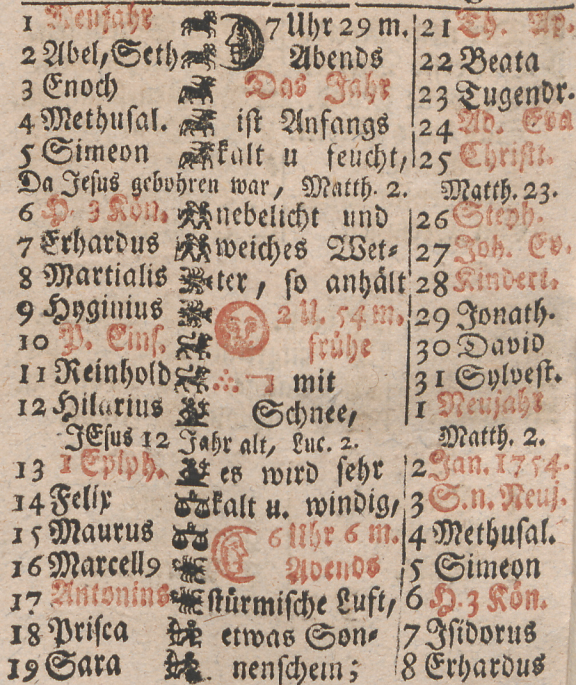 1 Neujahr 7 Uhr 29 m. 21 Th. Ap.
2 Abel, Seth Abends 22 Beata
3 Enoch Das Jahr 23 Tugendr.
4 Methusal. ist Anfangs 24 Ad. Eva
5 Simeon kalt u feucht, 25 Christt.
Da Jesus gebohren war, Matth. 2. Matth. 23.
6 H. 3 Kön. nebelicht und 26 Steph.
7 Erhardus weiches Wet- 27 Joh. Ev.
8 Martialis ter, so anhält 28 Kindert.
9 Hyginius 2 U. 54 m. 29 Jonath.
10 P. Eins. frühe 30 David
11 Reinhold mit 31 Sylvest.
12 Hilarius Schnee, 1 Neujahr
JEsus 12 Jahr alt, Luc. 2. Matth. 2.
13 1 Epiph. es wird sehr 2 Jan. 1754.
14 Felix kalt u. windig, 3 S. n. Neuj.
15 Maurus 6 Uhr 6 m. 4 Methusal.
16 Marcell9 Abends 5 Simeon
17 Antonius stürmische Luft, 6 H. 3 Kön.
18 Prisca etwas Son- 7 Isidorus
19 Sara nenschein; 8 Erhardus